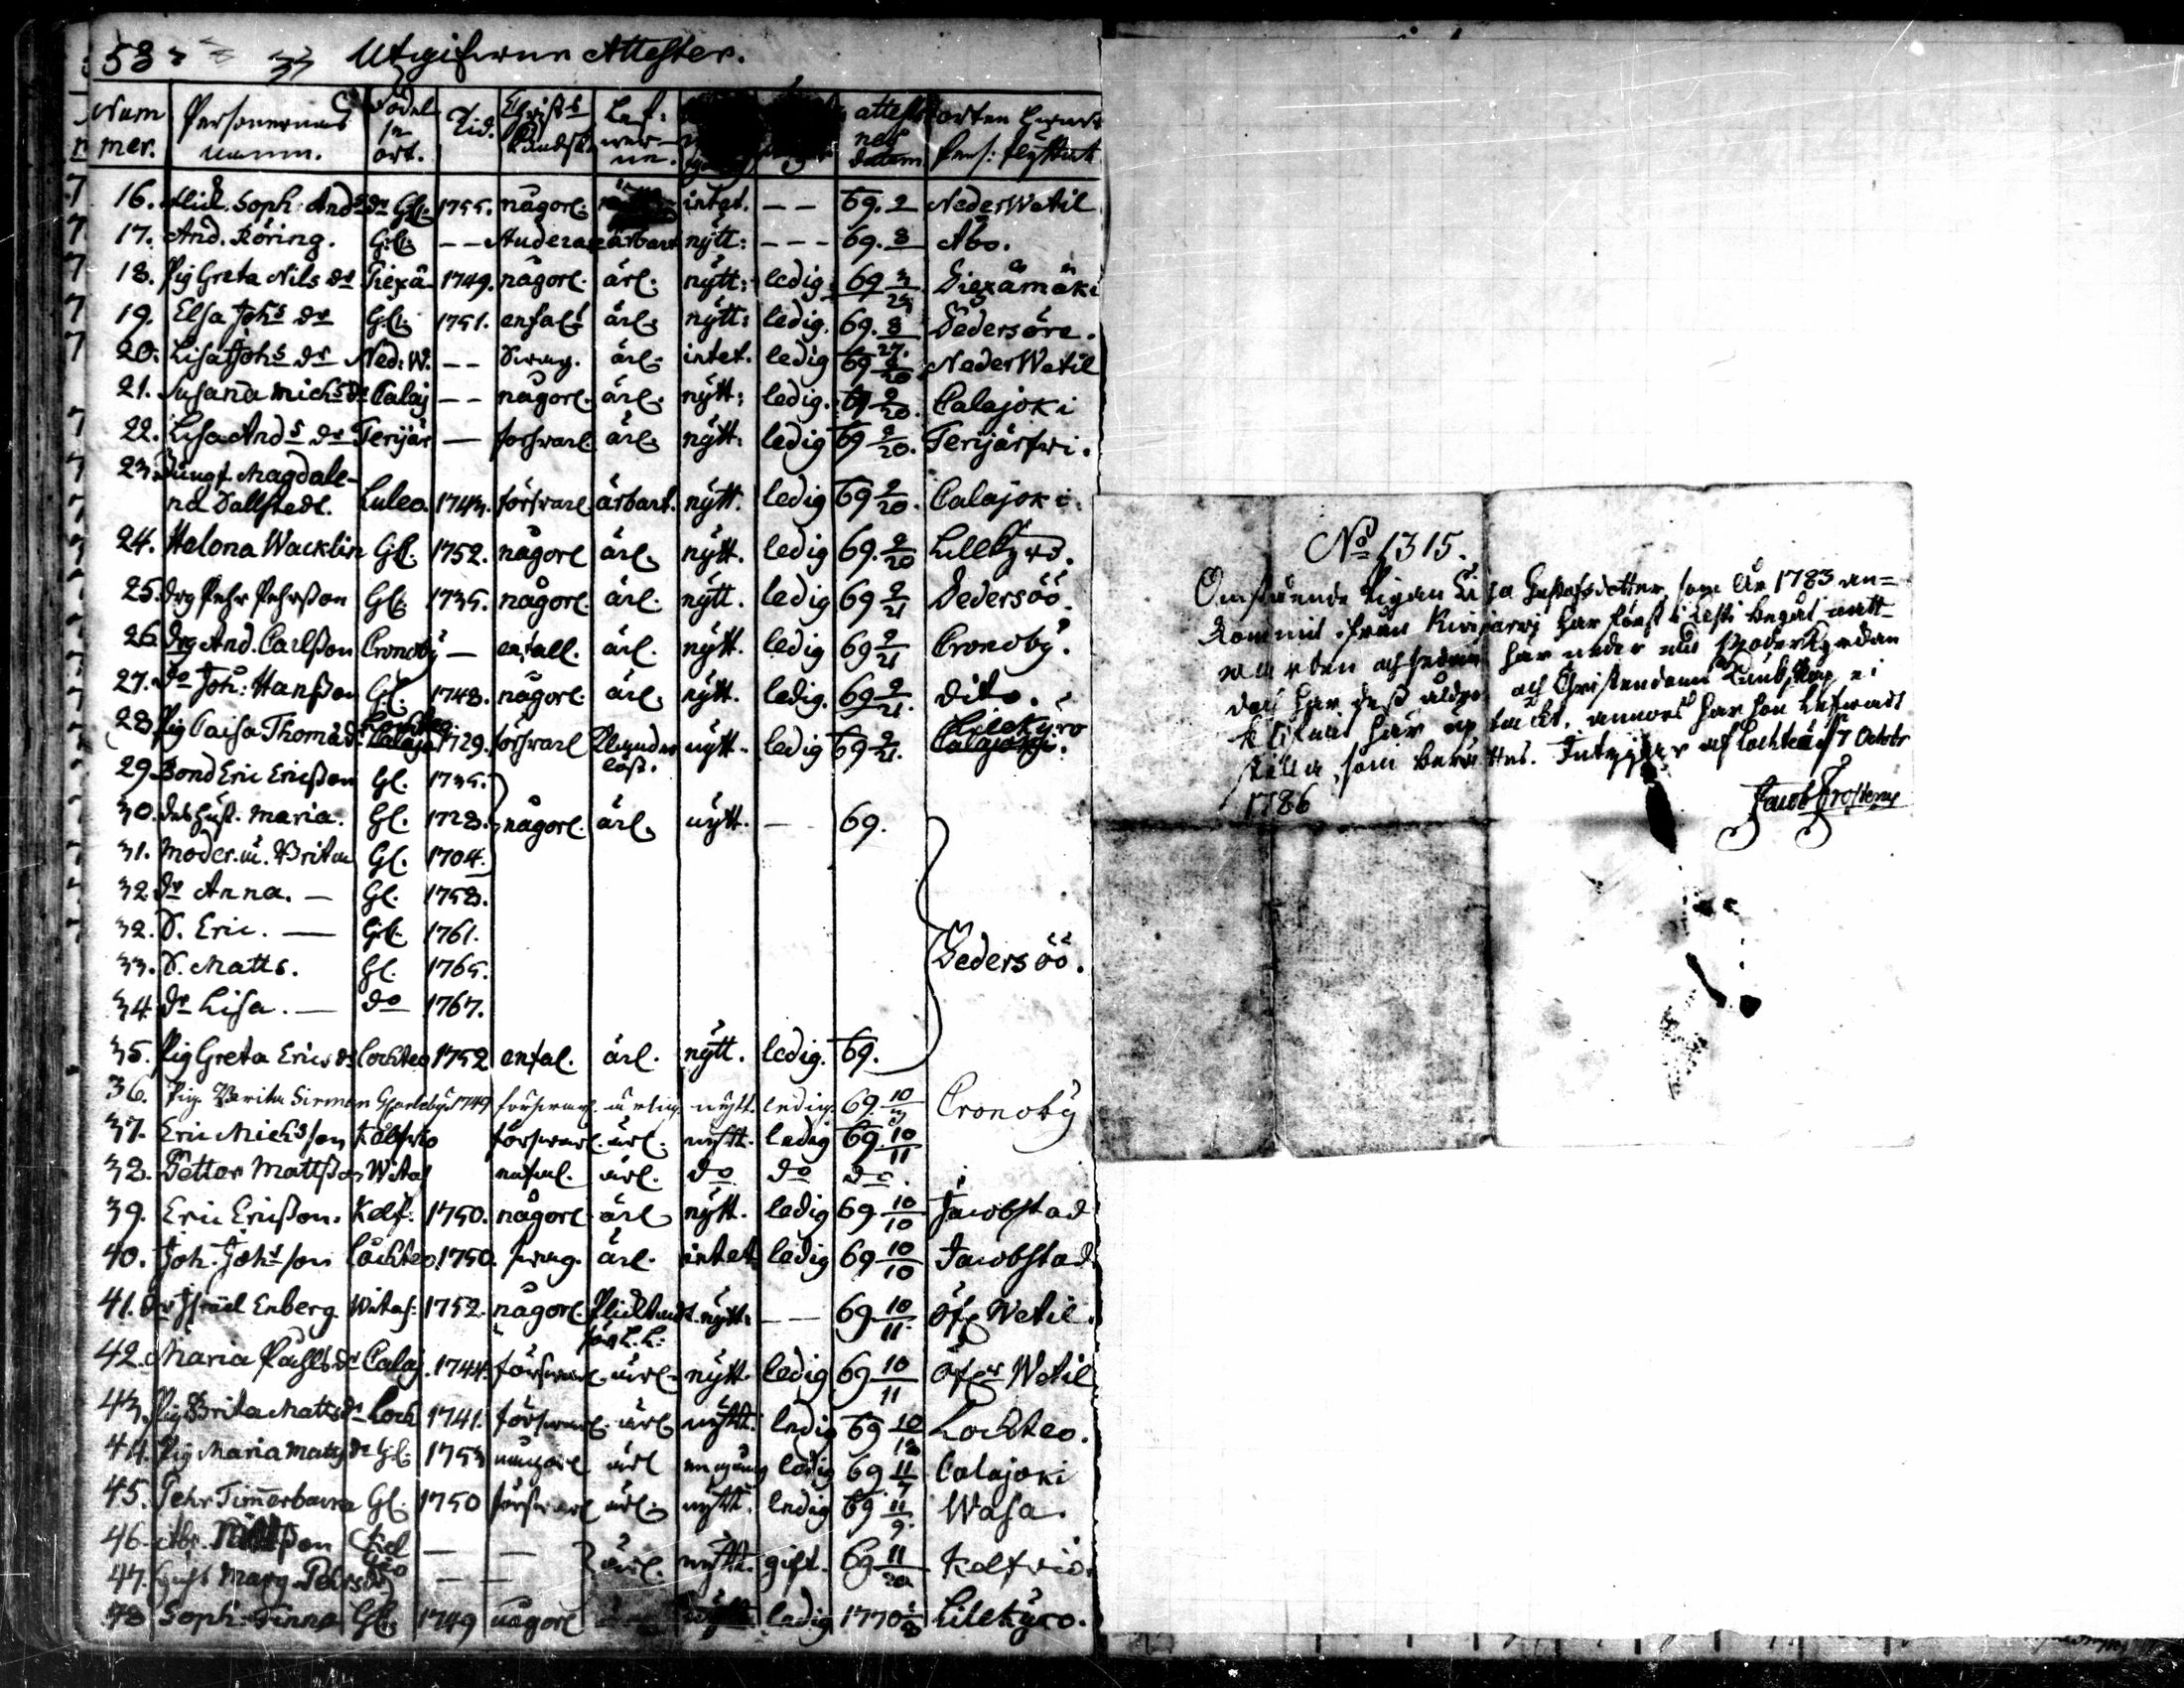 53 33 Utgifwne Attester.
Num mer. Personernas namn. Födel se ort. Tid. Christ: Kundsk. Lef: wer- ne. attest nes datum orten hwart Pers: flyttat
16. Soph. And: dr Gl. 1755. någorl. intet. — — 69. 2 NederWetil
17. And. Röring. Gl. — — Studerat ärbart nytt: — — — 69. 8 Åbo.
18. Pig Greta Nils dr Piexä 1749. någorl. ärl. nytt: ledig: 69 3/24 Piexämäki
19. Elsa Johs dr Gl. 1751. enfal: ärl. nytt: ledig. 69. 8/27. Pedersöre.
20. Lisa Johs dr Ned: W. — — Swag. ärl. intet. ledig 69 9/20 NederWetil
21. Susana Michs dr Calaj — — någorl. ärl. nytt: ledig. 69 9/20. Calajoki
22. Lisa Ands dr Terijär — forswarl. ärl. nytt: ledig 69 9/20. Terijärfwi.
23. Jungf. Magdale-
na Dallstedt. Luleo. 1743. förswarl ärbart. nytt. ledig 69 9/20. Calajoki.
24. Helena Wacklin Gl. 1752. någorl ärl. nytt. ledig 69. 9/20 Lillkyro.
25. Drg Pehr Pehrsson Gl. 1735. någorl. ärl. nytt. ledig 69 9/21 Pedersöö.
26. Drg And. Carlsson Cronoby — enfall. ärl. nytt. ledig 69 9/21 Cronoby.
27. Do Joh: Hansson Gl. 1748. någorl. ärl. nytt. ledig. 69 9/21. dito.
28. Pig Caisa Thoma dr Lochteo Calajo 1729. forswarl Klander löst. nytt. ledig 69 9/21. Lillkyro Calajoki.
29. Bond Eric Ericsson Gl. 1735.
30. des hust. Maria. Gl. 1728. någorl. ärl. nytt. — 69.
31. Moder. Brita Gl. 1704.
32. dr Anna. — Gl. 1758.
32. S. Eric. — Gl. 1761.
33. S. Matts. Gl. 1765. Pedersöö.
34. dr Lisa. — do 1767.
35. Pig Greta Erics dr Lochteo 1752 enfal. ärl. nytt. ledig. 69.
36. Pig. Brita Sirmen Gamleby 1749 förswarl. ärlig nytt. ledig. 69. 10/3 Cronoby
37. Eric Michsson Kelfwio förswarl. ärl. nytt. ledig 69. 10/11
38. Petter Mattsson Witas enfal. ärl. do do do.
39. Eric Ericsson. Kelf. 1750. någorl ärl nytt. ledig 69. 10/10 Jacobstad
40. Joh. Johsson Lochteo. 1750. swag. ärl. intet ledig 69 10/10 Jacobstad
41. Israel Enberg Witas: 1752. någorl. Plicktadt för L. L: nytt. — — 69 10/11. Öf. Wetil.
42. Maria Påhls dr Calaj. 1744. förswarl. ärl. nytt. ledig 69 10/11 Öfer Wetil
43. Pig Brita Matts dr Loch 1741. förswarl. ärl nytt. ledig 69 10/12 Lochteo.
44. Pig Maria Matts dr Gl. 1753 någorl ärl ledig 69 11/7 Calajoki
45. Pehr Timmerbacka Gl. 1750 förswarl ärl. nytt. ledig 69 11/9. Wasa.
46. Abr. Mattsson Kel — — ärl. nytt. gift. 69 11/20 Kelfwiå.
47. Hust Marg. Pehrs dr — —
48 Soph. Finne Gl. 1749 någorl ledig 1770 Lilekyro.
No 1315.
Omstående Pigan Lisa Gustafsdotter, som År 1783 an-
kommit ifrån Kiwijarwi har först i Lesti begåt natt-
warden och sedan har
doch har dess ålder och Christendoms Kundskap ei
här up annors har hon lefwadt
stilla, som berättes. Intygar af Lochteå d 7 Octobr
1786 Jacob Frosterus